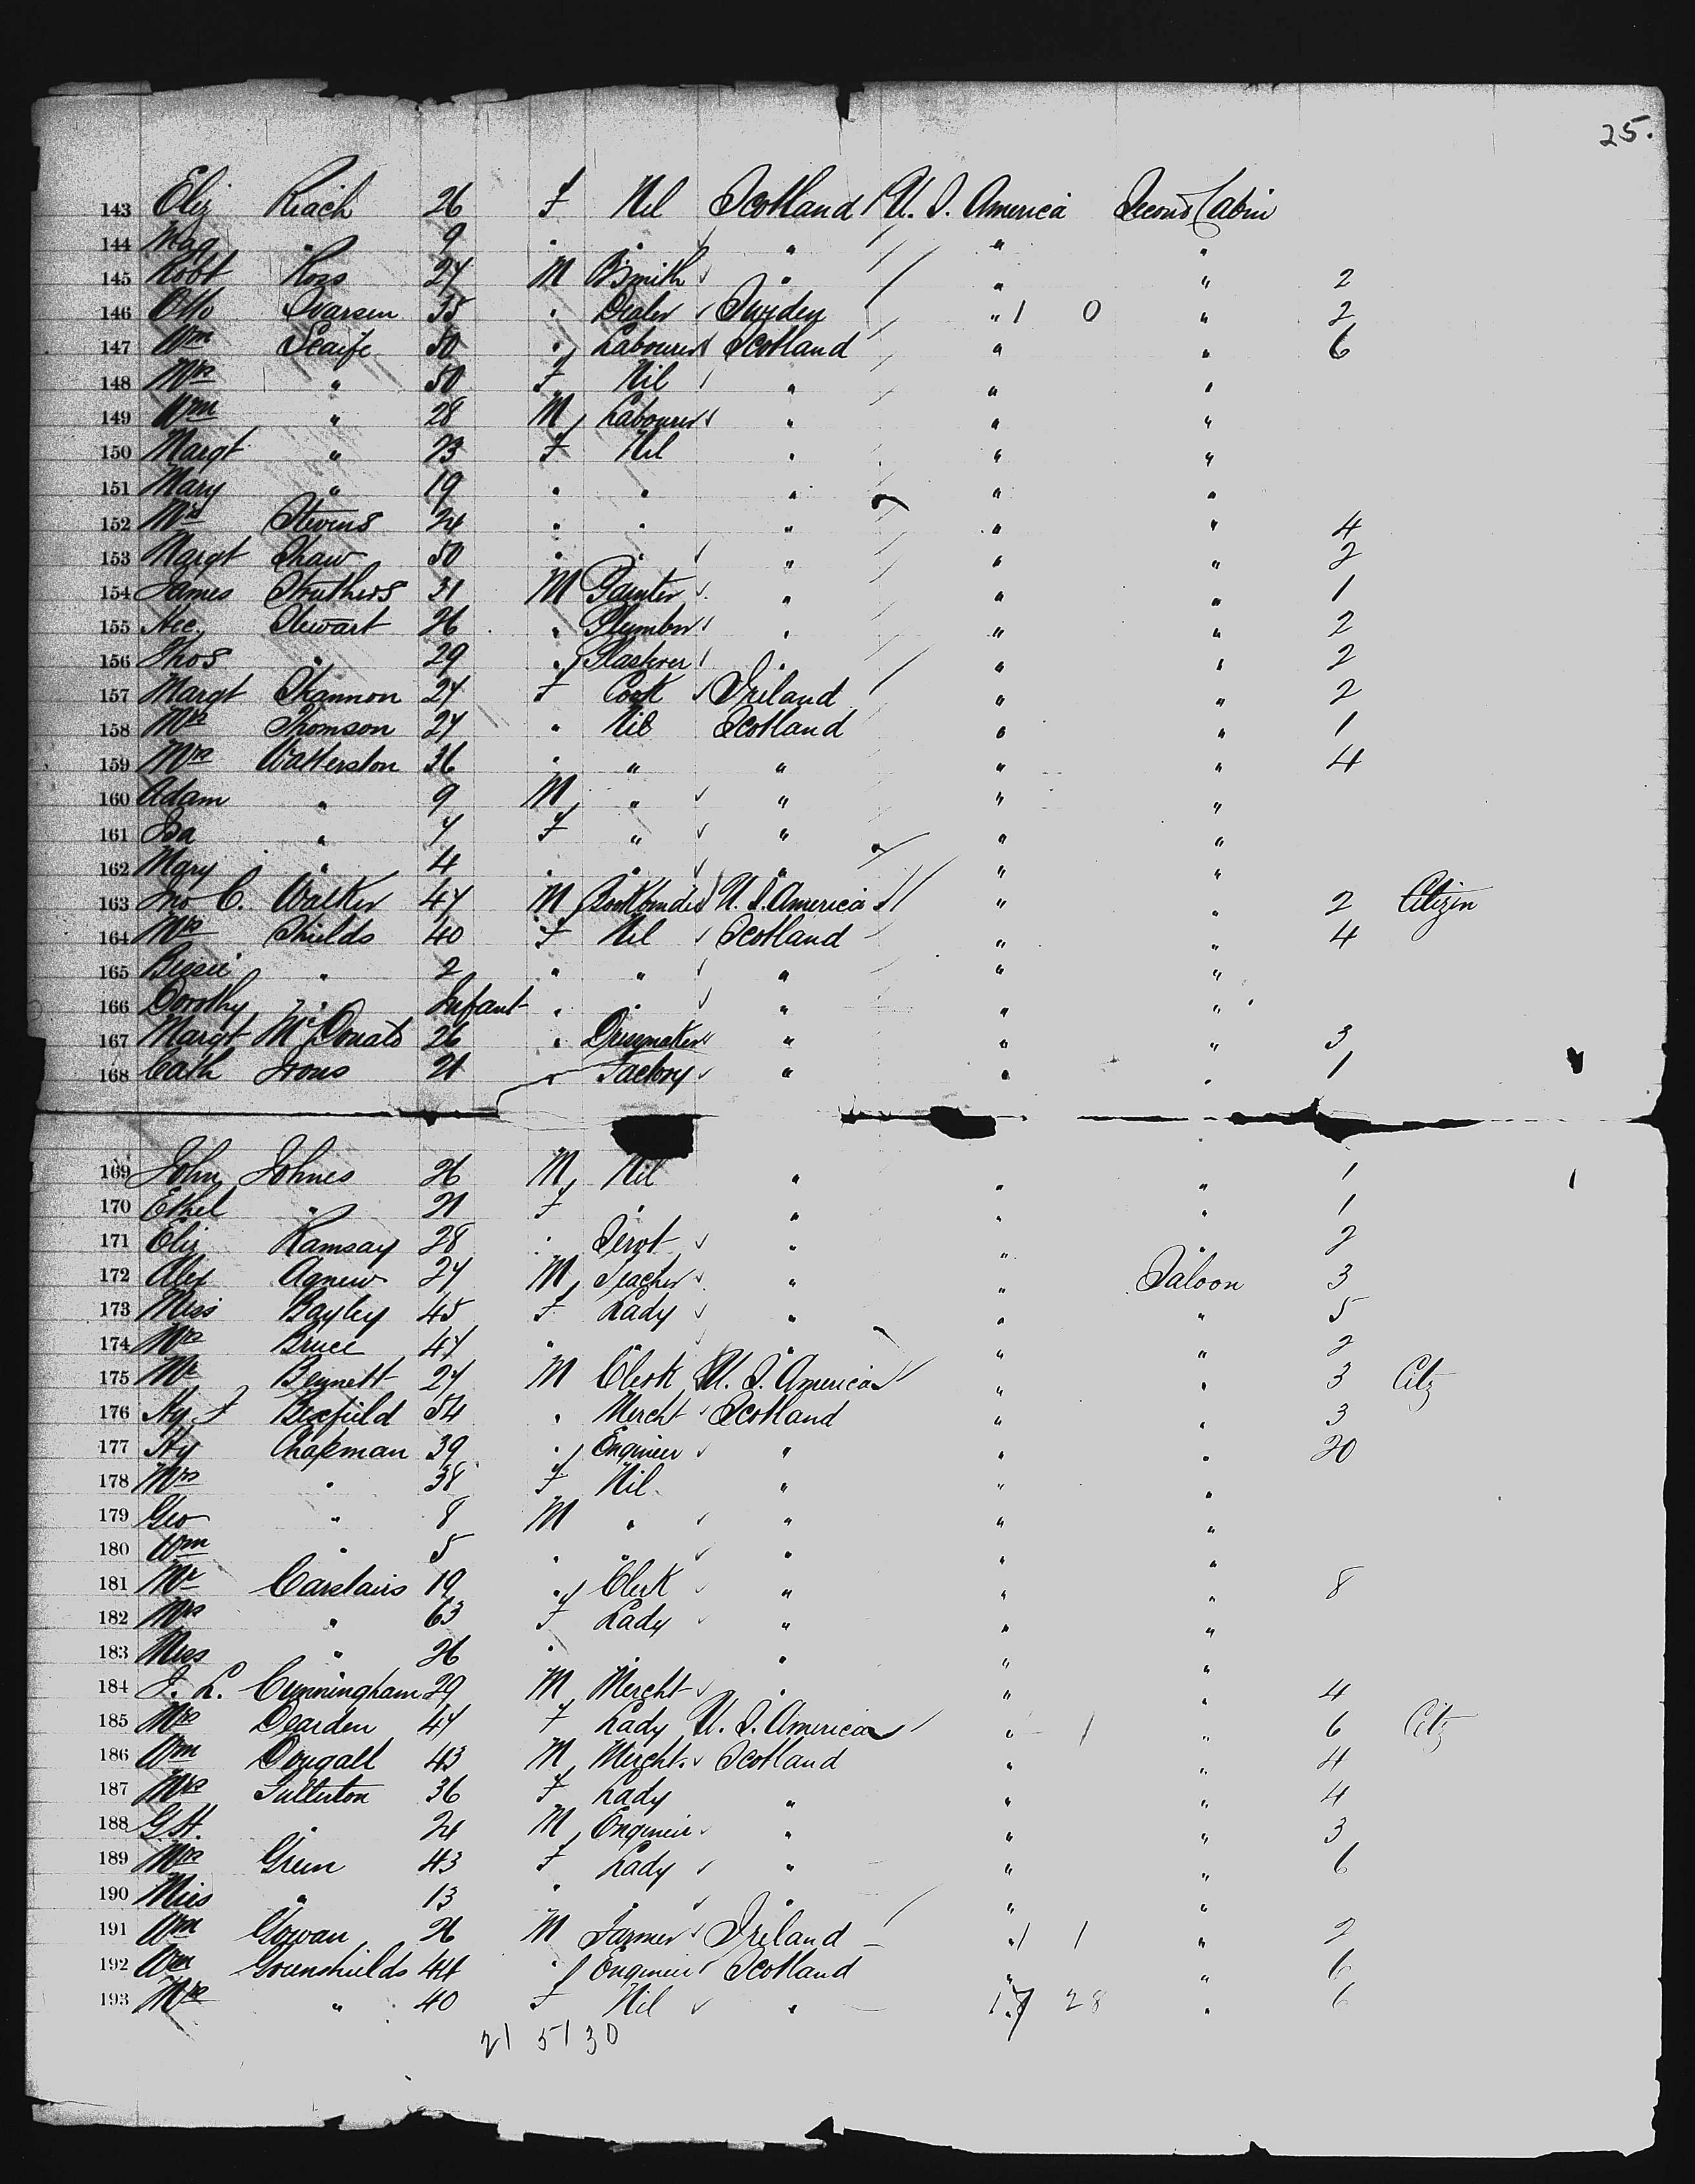 25.
143 Eliz Riach 26 F Nil Scotland U. S. America Second Cabin
144 Mag " 9 " " " " "
145 Robt Ross 27 M B'Smith " " " 2
146 Otto Ivarsen 35 " Dealer Sweden " 1 0 " 2
147 Wm Scaife 50 " Labourer Scotland " " 6
148 Mrs " 50 F Nil " " "
149 Wm " 28 M Labourer " " "
150 Margt " 23 F Nil " " "
151 Mary " 19 " " " " "
152 Stevens 24 " " " " " 4
153 Margt Shaw 50 " " " " " 2
154 James Struthers 31 M Painter " " " 1
155 Alec. Stewart 26 " Plumber " " " 2
156 Thos " 29 " Plasterer " " " 2
157 Margt Shannon 27 F Cook Ireland " " 2
158 Mrs Thomson 27 " Nil Scotland " " 1
159 Mrs Watterston 36 " " " " " 4
160 Adam " 9 M " " " "
161 Ida " 7 F " " " "
162 Mary " 4 " " " " "
163 Jno C. Walker 47 M Bookbinder U. S. America " " 2 Citizen
164 Mrs Shields 40 F Nil Scotland " " 4
165 Bessie " 2 " " " " "
166 Dorothy " Infant " " " " "
167 Margt McDonald 26 " Dressmaker " " " 3
168 Cath Irons 21 " Factory " " " 1
169 John Johnes 26 M Nil " " " 1
170 Ethel " 21 F " " " " 1
171 Eliz Ramsay 28 " Servt " " " 2
172 Alex Agnew 27 M Teacher " " Saloon 3
173 Miss Bayley 45 F Lady " " " 5
174 Mrs Bruce 47 " " " " " 2
175 Mr Bennett 27 M Clerk U. S. America " " 3 Citz
176 Hy. F Bexfield 54 " Mercht Scotland " " 3
177 Hy Chapman 39 " Engineer " " " 20
178 Mrs " 38 F Nil " " "
179 Geo " 8 M " " " "
180 Wm " 5 " " " " "
181 Mr Carstairs 19 " Clerk " " " 8
182 Mrs " 63 F Lady " " "
183 Miss " 26 " " " " "
184 J. L. Cunningham 29 M Mercht " " " 4
185 Mrs Dearden 47 F Lady U. S. America " 1 " 6 Citz
186 Wm Dougall 43 M Mercht. Scotland " " 4
187 Mrs Fullerton 36 F Lady " " " 4
188 G. H. " 24 M Engineer " " " 3
189 Mrs Green 43 F Lady " " " 6
190 Miss " 13 " " " " "
191 Wm Gowan 26 M Farmer Ireland " 1 1 " 2
192 Wm Greenshields 44 " Engineer Scotland " " 6
193 Mrs " 40 F Nil " 17 28 " 6
21 51 30